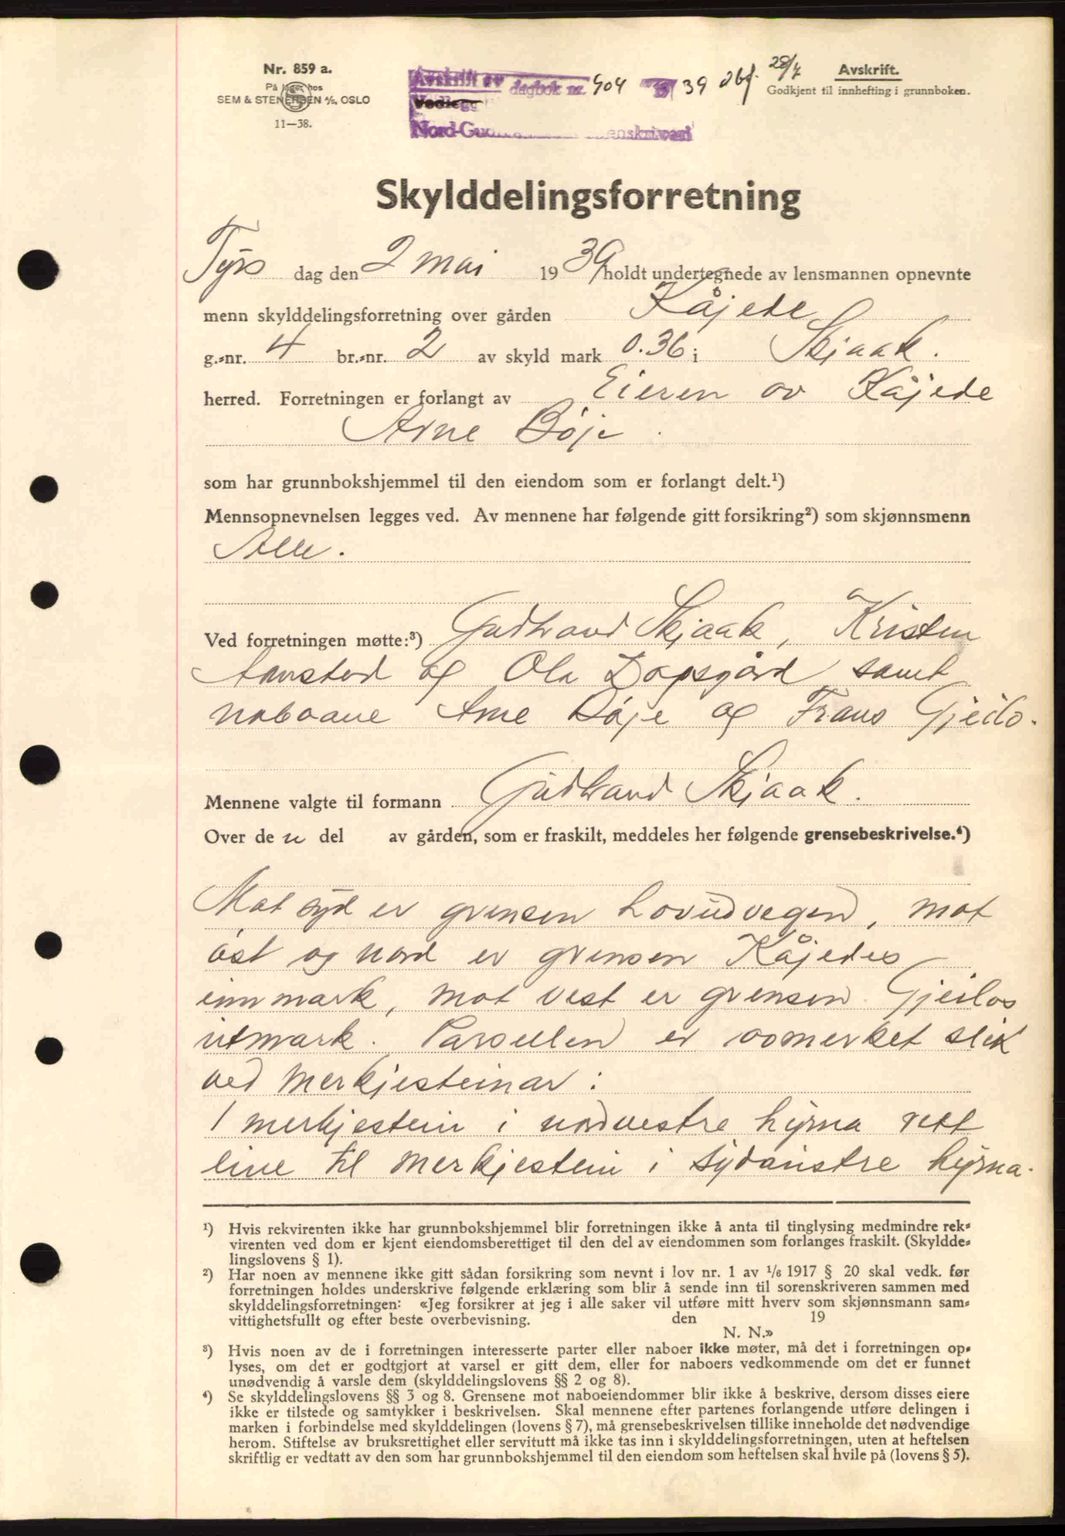 Nr. 859 a.
På lager hos
SEM & STENERSEN A/S, OSLO
11—38.
Avskrift av dagbok nr. 904 39 Obf. 28/7
Vedlegg
Nord-Gudbrandsdal sorenskriveri
Avskrift.
Godkjent til innhefting i grunnboken.
Skylddelingsforretning
Tyrs dag den 2 mai 1939 holdt undertegnede av lensmannen opnevnte
menn skylddelingsforretning over gården Kåjede
g.-nr. 4 br.-nr. 2 av skyld mark 0.36 i Skjaak.
herred. Forretningen er forlangt av Eieren av Kåjede
Arne Bøje.
som har grunnbokshjemmel til den eiendom som er forlangt delt.¹)
Mennsopnevnelsen legges ved. Av mennene har følgende gitt forsikring²) som skjønnsmenn
Alle.
Ved forretningen møtte:³) Gudbrand Skjaak, Kristen
Aanstad og Ola Dagsgård samt
naboane Arne Bøje og Frans Gjeilo.
Mennene valgte til formann Gudbrand Skjaak.
Over den del av gården, som er fraskilt, meddeles her følgende grensebeskrivelse.⁴)
Mot syd er grensen hovudvegen, mot
øst og nord er grensen Kåjedes
innmark, mot vest er grensen Gjeilos
utmark. Parsellen er avmerket slik
ved merkjesteinar:
1 merkjestein i nordvestre hyrna rett
line til merkjestein i sydaustre hyrna.
¹) Hvis rekvirenten ikke har grunnbokshjemmel blir forretningen ikke å anta til tinglysing medmindre rek-
virenten ved dom er kjent eiendomsberettiget til den del av eiendommen som forlanges fraskilt. (Skyldde-
lingslovens § 1).
²) Har noen av mennene ikke gitt sådan forsikring som nevnt i lov nr. 1 av 1/6 1917 § 20 skal vedk. før
forretningen holdes underskrive følgende erklæring som blir å sende inn til sorenskriveren sammen med
skylddelingsforretningen: «Jeg forsikrer at jeg i alle saker vil utføre mitt hverv som skjønnsmann sam-
vittighetsfullt og efter beste overbevisning. den 19
N. N.»
³) Hvis noen av de i forretningen interesserte parter eller naboer ikke møter, må det i forretningen op-
lyses, om det er godtgjort at varsel er gitt dem, eller for naboers vedkommende om det er funnet
unødvendig å varsle dem (skylddelingslovens §§ 2 og 8).
⁴) Se skylddelingslovens §§ 3 og 8. Grensene mot naboeiendommer blir ikke å beskrive, dersom disses eiere
ikke er tilstede og samtykker i beskrivelsen. Skal mennene efter partenes forlangende utføre delingen i
marken i forbindelse med skylddelingen (lovens § 7), må grensebeskrivelsen tillike inneholde det nødvendige
herom. Stiftelse av bruksrettighet eller servitutt må ikke tas inn i skylddelingsforretningen, uten at heftelsen
skriftlig er vedtatt av den som har grunnbokshjemmel til den eiendom som heftelsen skal hvile på (lovens § 5).